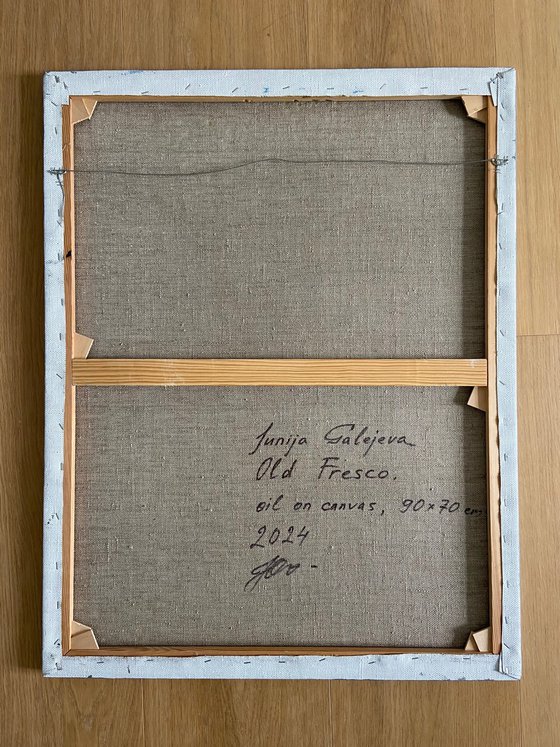 Junija Galejeva
Old Fresco.
oil on canvas, 90x70 cm
2024